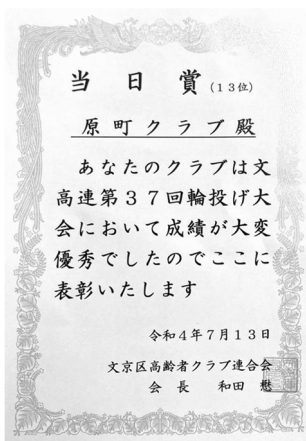 当日賞（１３位）
原町クラブ殿
あなたのクラブは文
高連第３７回輪投げ大
会において成績が大変
優秀でしたのでここに
表彰いたします
令和４年７月１３日
文京区高齢者クラブ連合会
会長　和田　懋